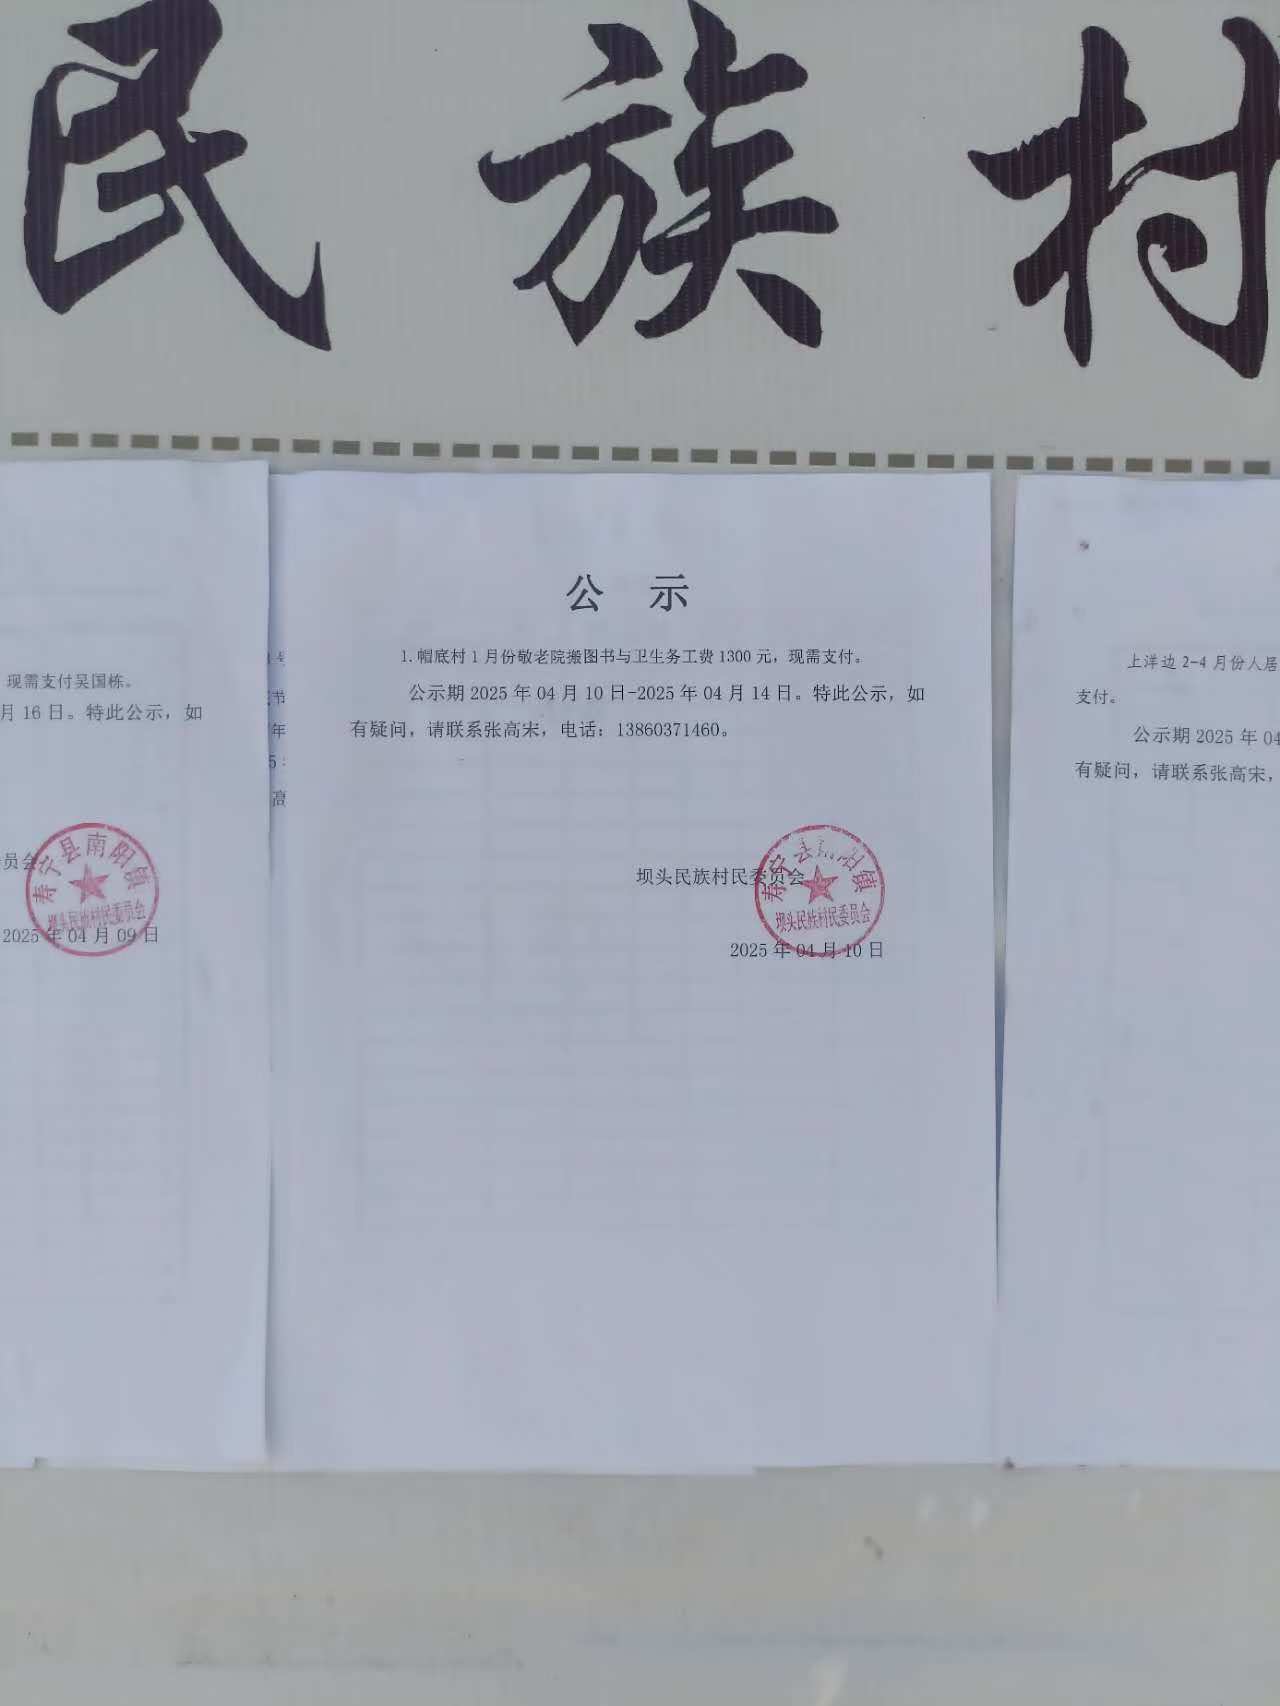 民族村
现需支付吴国栋。
月16日。特此公示，如
员会
寿宁县南阳镇
坝头民族村民委员会
2025年04月09日
公 示
1.帽底村1月份敬老院搬图书与卫生务工费1300元，现需支付。
公示期2025年04月10日-2025年04月14日。特此公示，如
有疑问，请联系张高宋，电话：13860371460。
坝头民族村民委员会
寿宁县南阳镇
坝头民族村民委员会
2025年04月10日
上洋边2-4月份人居
支付。
公示期2025年04
有疑问，请联系张高宋，